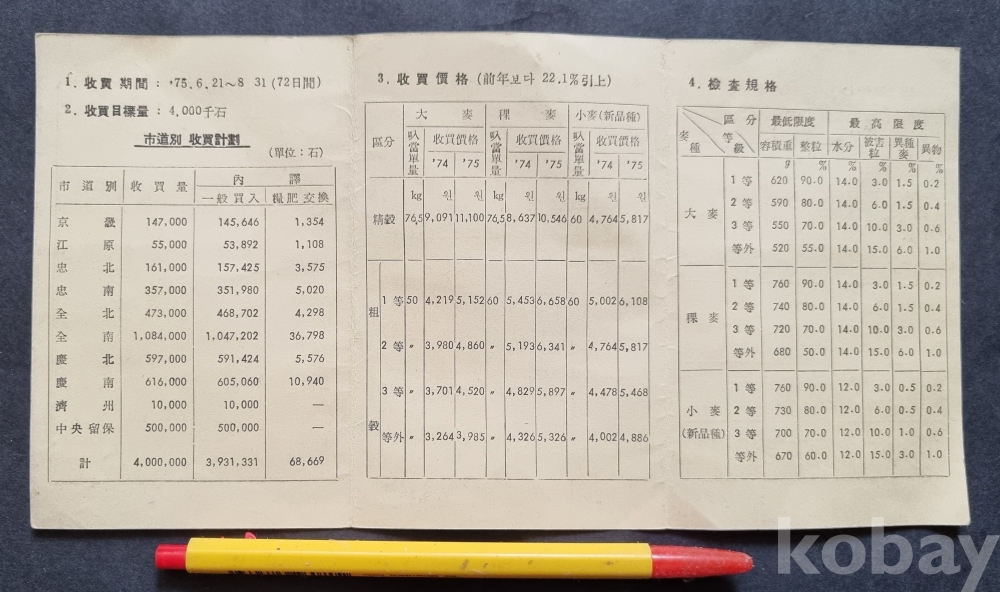 1. 收買期間 : '75.6.21~8 31 (72日間)
2. 收買目標量 : 4,000千石
市道別 收買計劃
(單位:石)
市道別 收買量 內譯
一般買入 糧肥交換
京畿 147,000 145,646 1,354
江原 55,000 53,892 1,108
忠北 161,000 157,425 3,575
忠南 357,000 351,980 5,020
全北 473,000 468,702 4,298
全南 1,084,000 1,047,202 36,798
慶北 597,000 591,424 5,576
慶南 616,000 605,060 10,940
濟州 10,000 10,000 —
中央留保 500,000 500,000 —
計 4,000,000 3,931,331 68,669
3. 收買價格 (前年보다 22.1%引上)
區分 大麥 稞麥 小麥(新品種)
叺當單量 收買價格 叺當單量 收買價格 叺當單量 收買價格
'74 '75 '74 '75 '74 '75
kg 원 원 kg 원 원 kg 원 원
精穀 76,5 9,091 11,100 76,5 8,637 10,546 60 4,764 5,817
粗穀
1等 50 4,219 5,152 60 5,453 6,658 60 5,002 6,108
2等 〃 3,980 4,860 〃 5,193 6,341 〃 4,764 5,817
3等 〃 3,701 4,520 〃 4,829 5,897 〃 4,478 5,468
等外 〃 3,264 3,985 〃 4,326 5,326 〃 4,002 4,886
4. 檢査規格
區分 最低限度 最高限度
麥種 等級 容積重 整粒 水分 被害粒 異種麥 異物
g % % % % %
大麥
1等 620 90.0 14.0 3.0 1.5 0.2
2等 590 80.0 14.0 6.0 1.5 0.4
3等 550 70.0 14.0 10.0 3.0 0.6
等外 520 55.0 14.0 15.0 6.0 1.0
稞麥
1等 760 90.0 14.0 3.0 1.5 0.2
2等 740 80.0 14.0 6.0 1.5 0.4
3等 720 70.0 14.0 10.0 3.0 0.6
等外 680 50.0 14.0 15.0 6.0 1.0
小麥
(新品種)
1等 760 90.0 12.0 3.0 0.5 0.2
2等 730 80.0 12.0 6.0 0.5 0.4
3等 700 70.0 12.0 10.0 1.0 0.6
等外 670 60.0 12.0 15.0 3.0 1.0
kobay